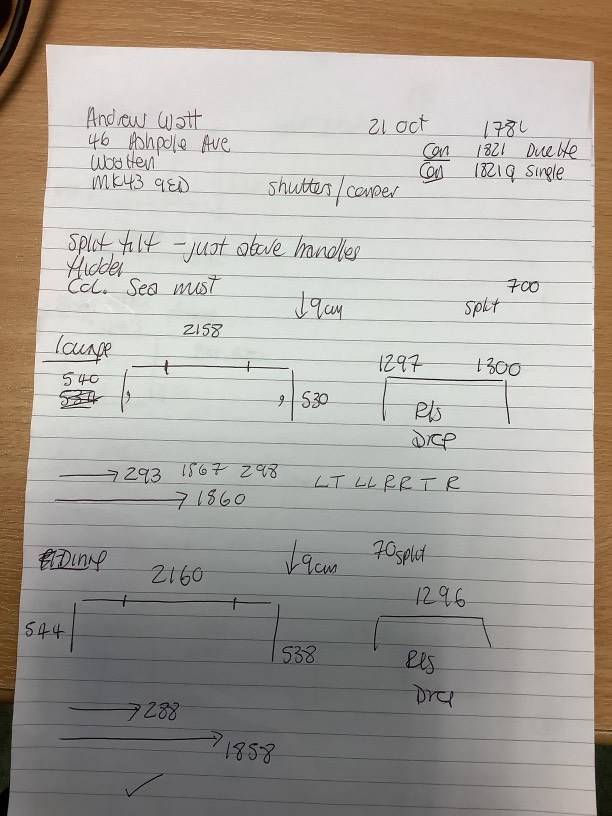 Andrew Watt 21 Oct 178
46 Ashpole Ave Con 1821 Duette
Wootten Con 1821 9 Single
MK43 9ED shutters/
Split tilt - just above handles
Hidden
Col. Sea mist 700
↓9cm split
2158
Lounge 1297 1300
540
534 530 Rls
Drop
→ 293 1567 298 L T L L R R T R
→ 1860
Dining ↓9cm 70 split
2160 1296
544 538 Rls
Drop
→ 288
→ 1858
✓